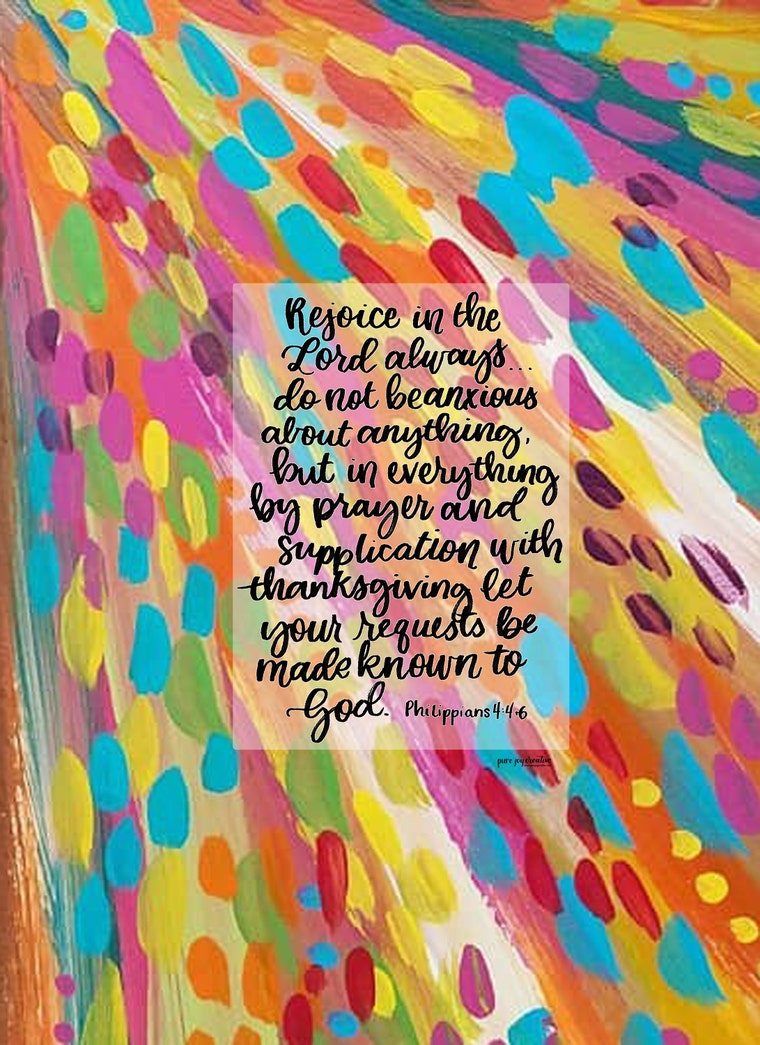 Rejoice in the
Lord always...
do not beanxious
about anything,
but in everything
by prayer and
supplication with
thanksgiving let
your requests be
made known to
God. Philippians 4:4,6
pure joy creative